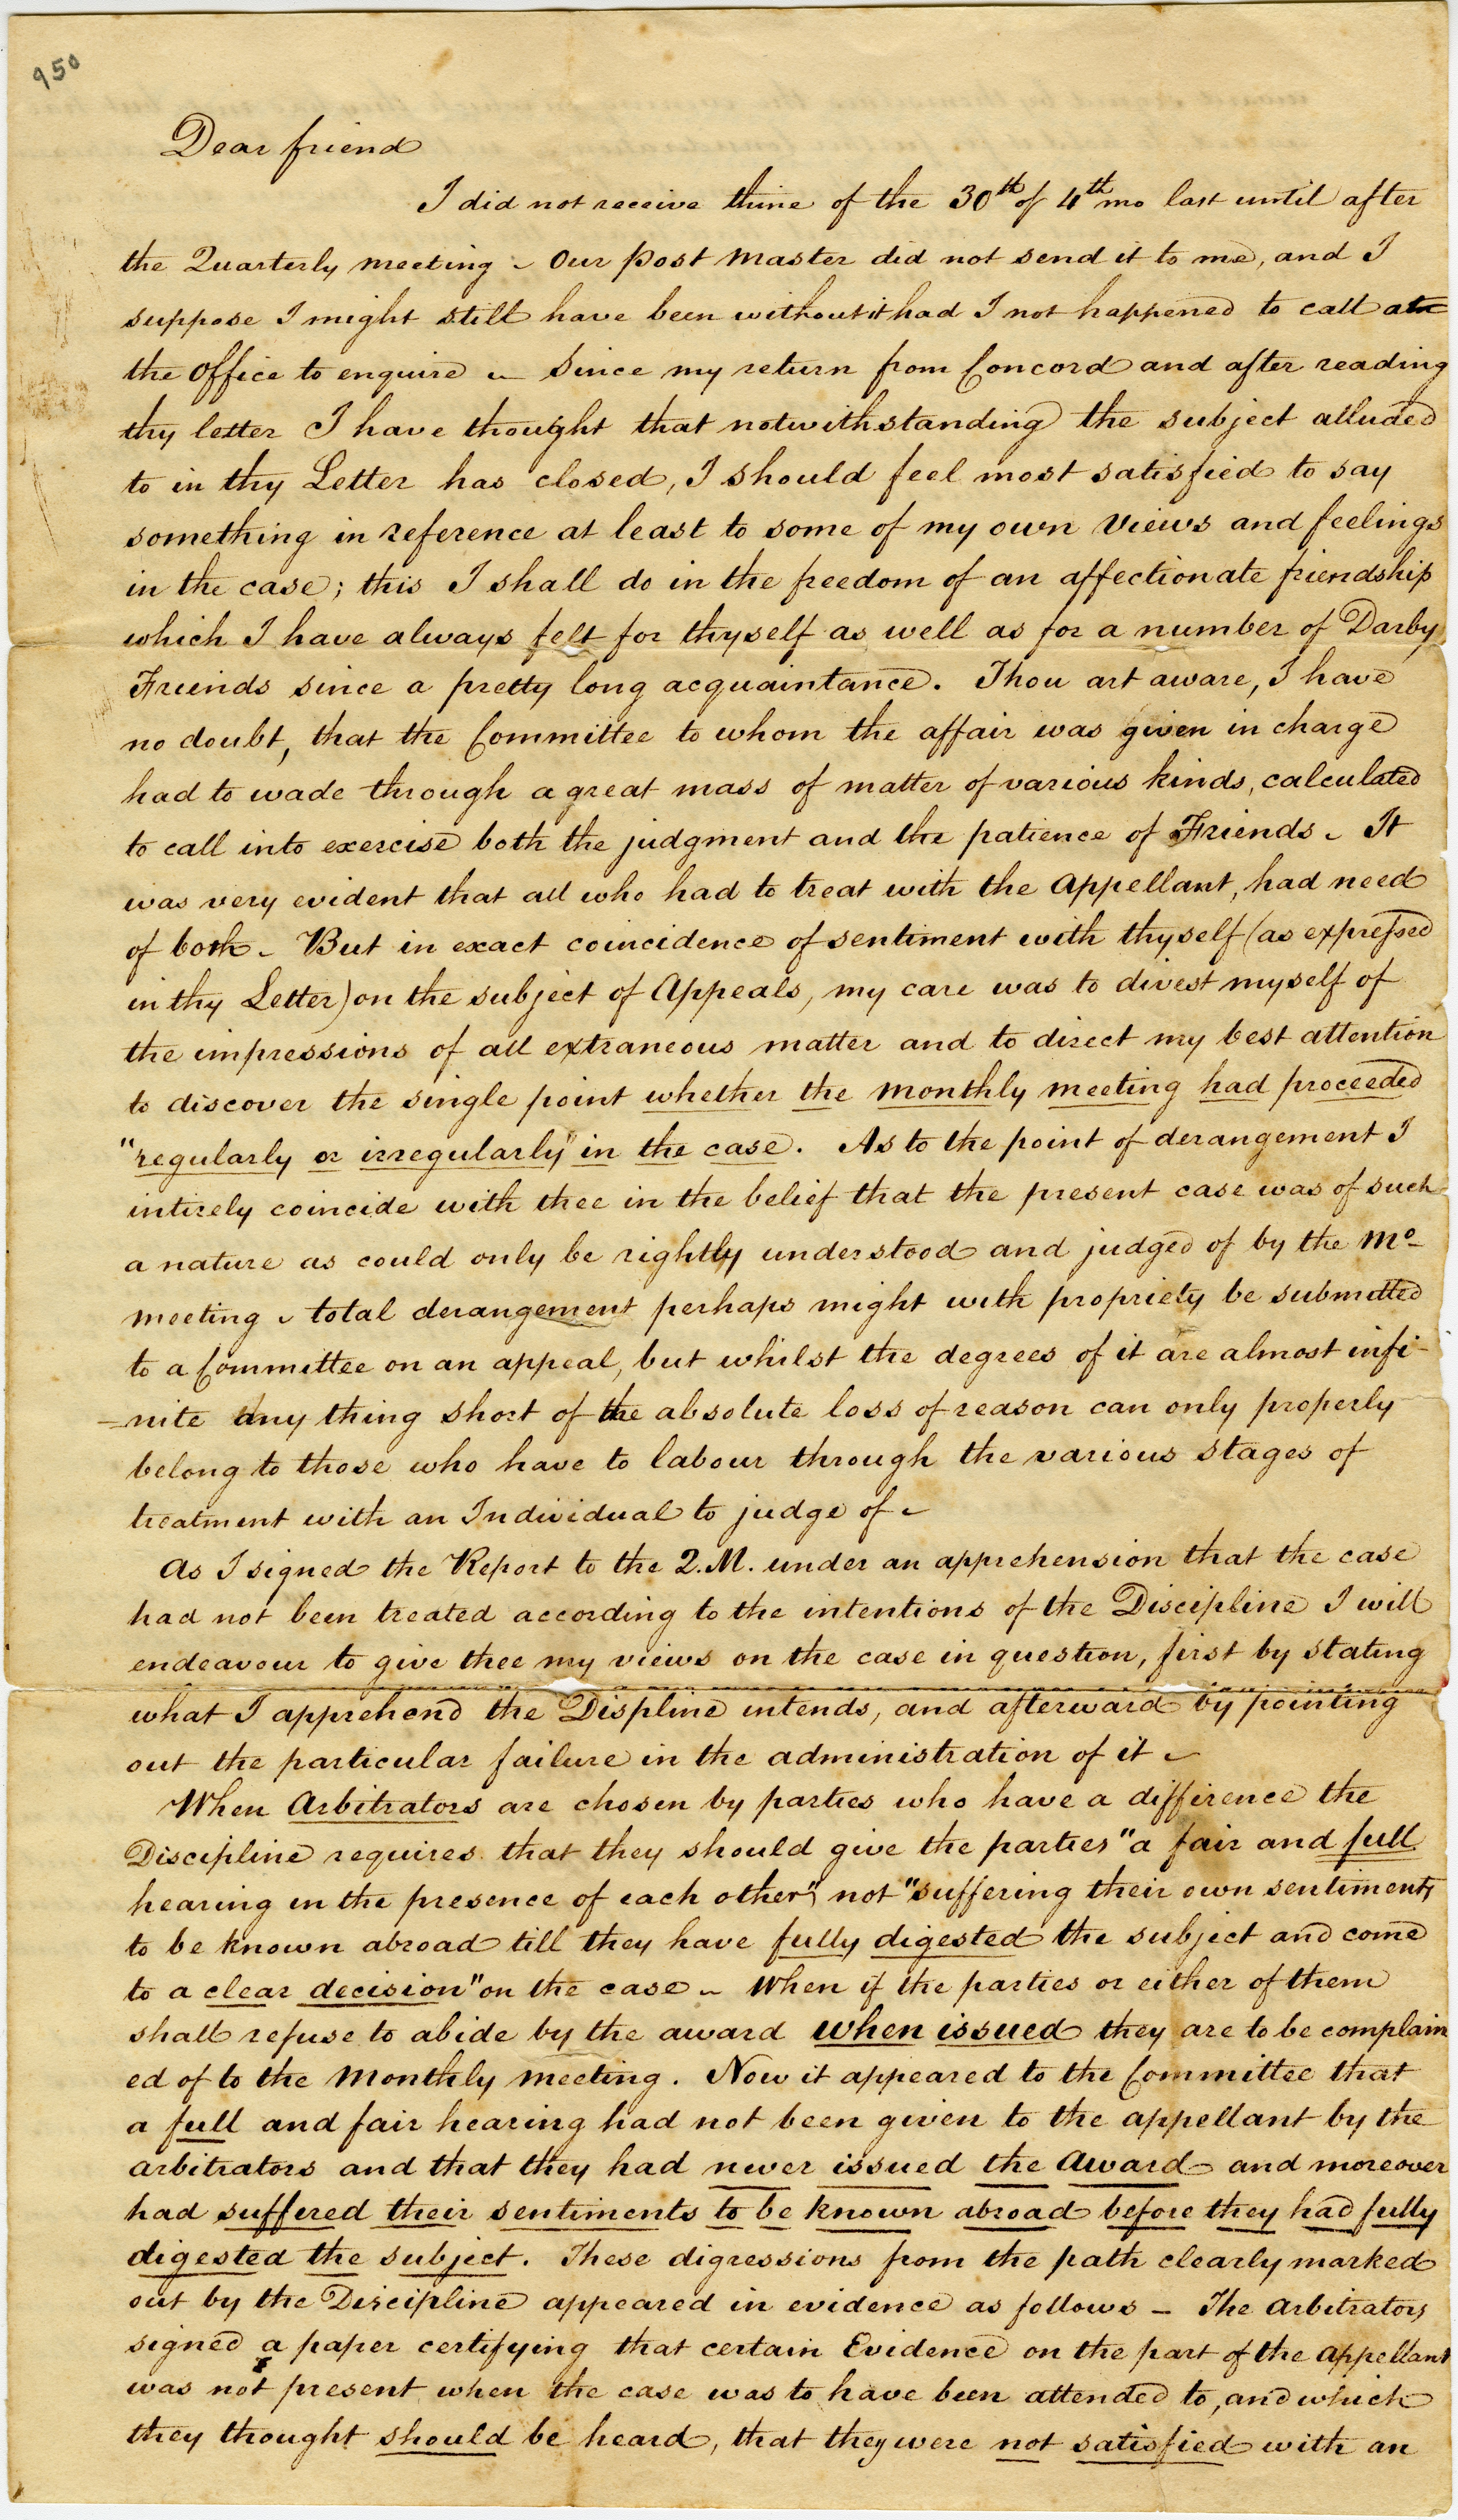 950
Dear friend
I did not receive thine of the 30th of 4th mo last until after
the Quarterly meeting – Our post master did not send it to me, and I
suppose I might still have been without it had I not happened to call at
the Office to enquire – Since my return from Concord and after reading
thy letter I have thought that notwithstanding the subject alluded
to in thy Letter has closed, I should feel most satisfied to say
something in reference at least to some of my own views and feelings
in the case; this I shall do in the freedom of an affectionate friendship
which I have always felt for thyself as well as for a number of Darby
Friends since a pretty long acquaintance. Thou art aware, I have
no doubt, that the Committee to whom the affair was given in charge
had to wade through a great mass of matter of various kinds, calculated
to call into exercise both the judgment and the patience of Friends – It
was very evident that all who had to treat with the Appellant, had need
of both – But in exact coincidence of sentiment with thyself (as expressed
in thy Letter) on the subject of Appeals, my care was to divest myself of
the impressions of all extraneous matter and to direct my best attention
to discover the single point whether the monthly meeting had proceeded
"regularly or irregularly" in the case. As to the point of derangement I
intirely coincide with thee in the belief that the present case was of such
a nature as could only be rightly understood and judged of by the Mo
meeting – total derangement perhaps might with propriety be submitted
to a Committee on an appeal, but whilst the degrees of it are almost infi-
-nite any thing short of the absolute loss of reason can only properly
belong to those who have to labour through the various stages of
treatment with an Individual to judge of –
As I signed the Report to the Q.M. under an apprehension that the case
had not been treated according to the intentions of the Discipline I will
endeavour to give thee my views on the case in question, first by stating
what I apprehend the Displine intends, and afterward by pointing
out the particular failure in the administration of it –
When Arbitrators are chosen by parties who have a difference the
Discipline requires that they should give the parties "a fair and full
hearing in the presence of each other", not "suffering their own sentiments
to be known abroad till they have fully digested the subject and come
to a clear decision" on the case – When if the parties or either of them
shall refuse to abide by the award when issued they are to be complain
ed of to the Monthly meeting. Now it appeared to the Committee that
a full and fair hearing had not been given to the appellant by the
arbitrators and that they had never issued the Award and moreover
had suffered their sentiments to be known abroad before they had fully
digested the subject. These digressions from the path clearly marked
out by the Discipline appeared in evidence as follows – The Arbitrators
signed a paper certifying that certain Evidence on the part of the appellant
was not present when the case was to have been attended to, and which
they thought should be heard, that they were not satisfied with an